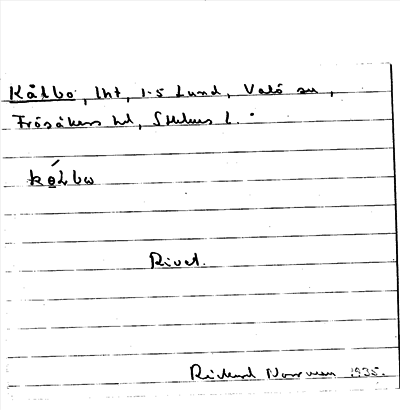 Kålbo, lht, 1:5 Lund, Valö sn,
Frösåkers hd, Sthlms l.
kó̱Lbω
Rivet.
Rickard Norrman 1935.